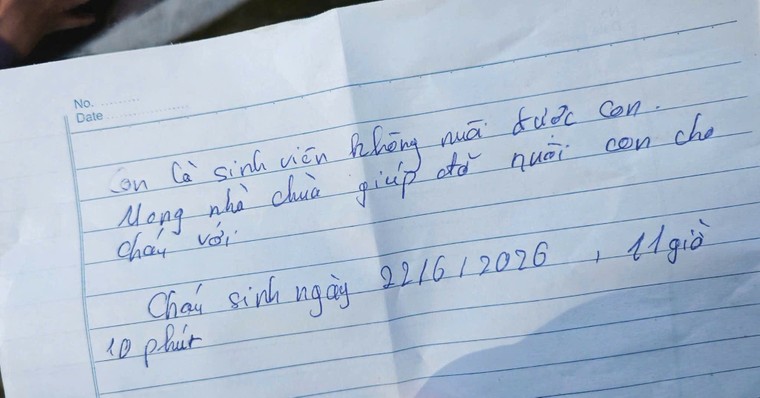 No. ..........
Date ....................
Con là sinh viên không nuôi được con.
Mong nhà chùa giúp đỡ nuôi con cho
cháu với
Cháu sinh ngày 22/6/2026, 11 giờ
10 phút